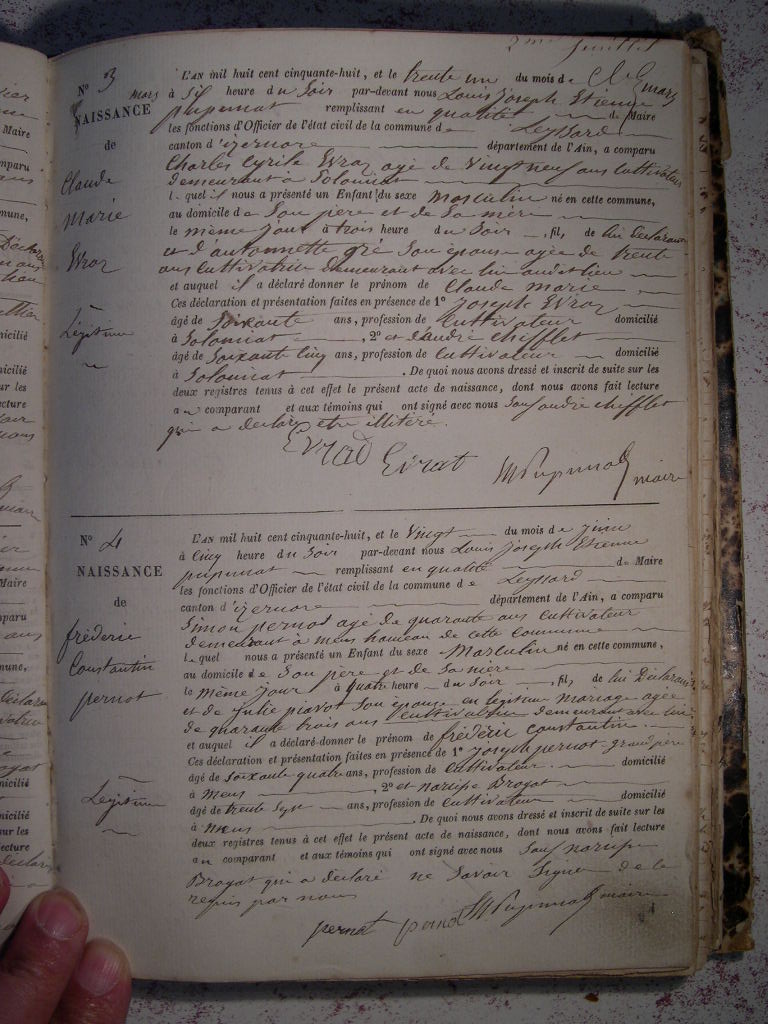 2me feuillet
N° 3 mars
NAISSANCE
de
Claude
Marie
Evroz
Légitime
L'AN mil huit cent cinquante-huit, et le trente un du mois de mars
à Six heure du Soir par-devant nous Louis Joseph Etienne
pupunat remplissant en qualité de Maire
les fonctions d'Officier de l'état civil de la commune de Leyssard
canton d'izernore département de l'Ain, a comparu
Charles Cyrile Evroz agé de Vingt neuf ans Cultivateur
demeurant à Solomiat
lequel il nous a présenté un Enfant du sexe masculin né en cette commune,
au domicile de Son père et de Sa mère
le même jour à trois heure du Soir, fils de lui Déclarant
et d'antonnette gré Son épouse agée de trente
ans Cultivatrice demeurant avec lui audit lieu
et auquel il a déclaré donner le prénom de Claude marie
Ces déclaration et présentation faites en présence de 1° Joseph Evroz
âgé de Soixante ans, profession de Cultivateur domicilié
à Solomiat, 2° et d'andré chifflet
âgé de Soixante Cinq ans, profession de Cultivateur domicilié
à Solomiat. De quoi nous avons dressé et inscrit de suite sur les
deux registres tenus à cet effet le présent acte de naissance, dont nous avons fait lecture
au comparant et aux témoins qui ont signé avec nous Sauf andré chifflet
qui a declaré etre illitéré.
Evrad Evrat M Pupunat maire
N° 4
NAISSANCE
de
frédéric
Constantin
pernot
Légitime
L'AN mil huit cent cinquante-huit, et le Vingt du mois de juin
à Cinq heure du Soir par-devant nous Louis Joseph Etienne
pupunat remplissant en qualité de Maire
les fonctions d'Officier de l'état civil de la commune de Leyssard
canton d'izernore département de l'Ain, a comparu
Simon pernot agé de quarante ans Cultivateur
demeurant à mens hameau de cette Commune
lequel nous a présenté un Enfant du sexe Masculin né en cette commune,
au domicile de Son père et de Sa mère
le même jour à quatre heure du Soir, fils de lui Déclarant
et de julie piavot Son épouse en légitime mariage agée
de quarante trois ans Cultivatrice demeurant avec lui
et auquel il a déclaré donner le prénom de frédéric constantin
Ces déclaration et présentation faites en présence de 1° Joseph pernot grand père
âgé de Soixante quatre ans, profession de Cultivateur domicilié
à mens, 2° et narcisse Broyat
âgé de trente Sept ans, profession de Cultivateur domicilié
à mens. De quoi nous avons dressé et inscrit de suite sur les
deux registres tenus à cet effet le présent acte de naissance, dont nous avons fait lecture
au comparant et aux témoins qui ont signé avec nous Sauf narcisse
Broyat qui a déclaré ne Savoir Signer de ce
requis par nous
pernot pernot M Pupunat maire